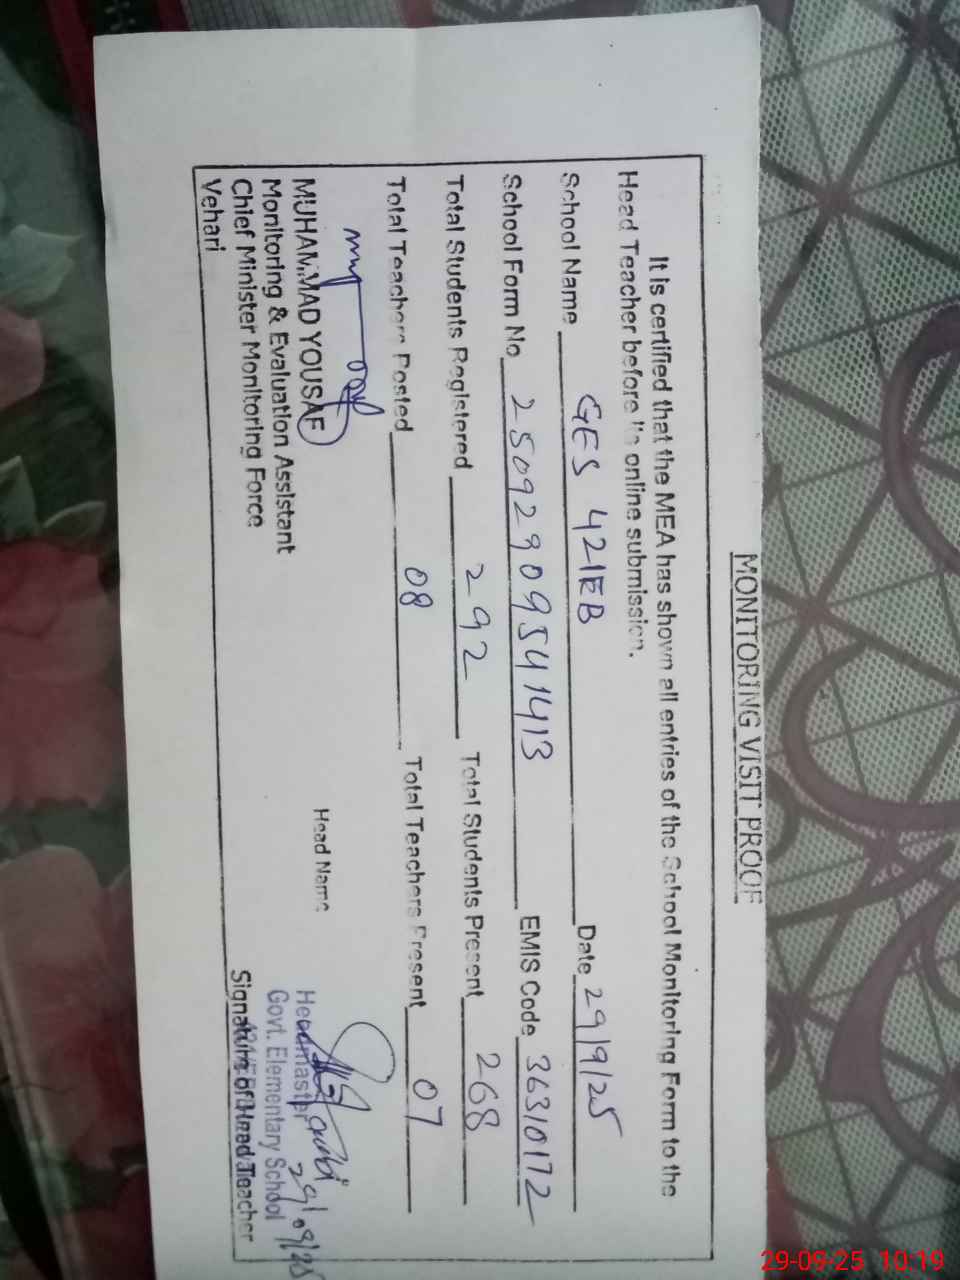 MONITORING VISIT PROOF
It is certified that the MEA has shown all entries of the School Monitoring Form to the
Head Teacher before its online submission.
School Name GES 421EB Date 29/9/25
School Form No 2509290954 1413 EMIS Code 36310172
Total Students Registered 292 Total Students Present 268
Total Teachers Posted 08 Total Teachers Present 07
MUHAMMAD YOUSAF Head Name
Monitoring & Evaluation Assistant
Chief Minister Monitoring Force
Vehari
Headmaster
29/09/25
Govt. Elementary School
Signature of Head Teacher
29-09-25 10:19